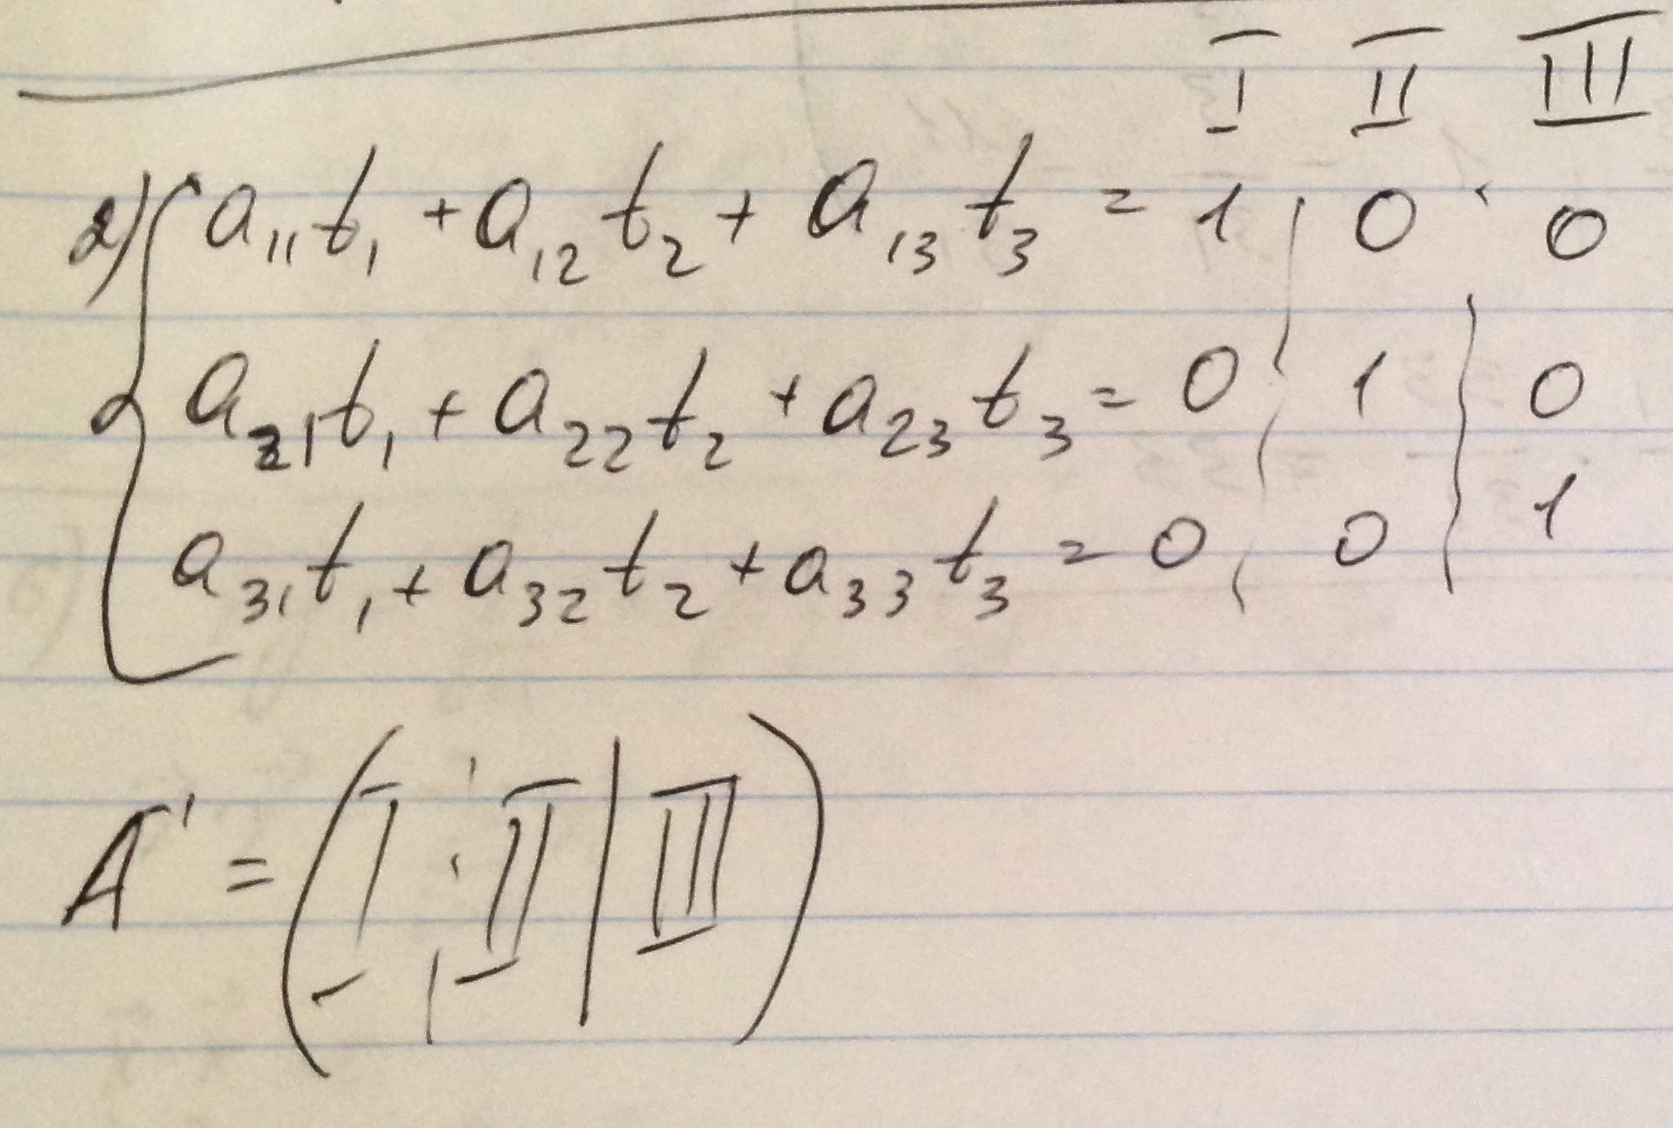 I II III
2) a₁₁t₁ + a₁₂t₂ + a₁₃t₃ = 1 | 0 | 0
a₂₁t₁ + a₂₂t₂ + a₂₃t₃ = 0 | 1 | 0
a₃₁t₁ + a₃₂t₂ + a₃₃t₃ = 0 | 0 | 1
A' = ( I | II | III )